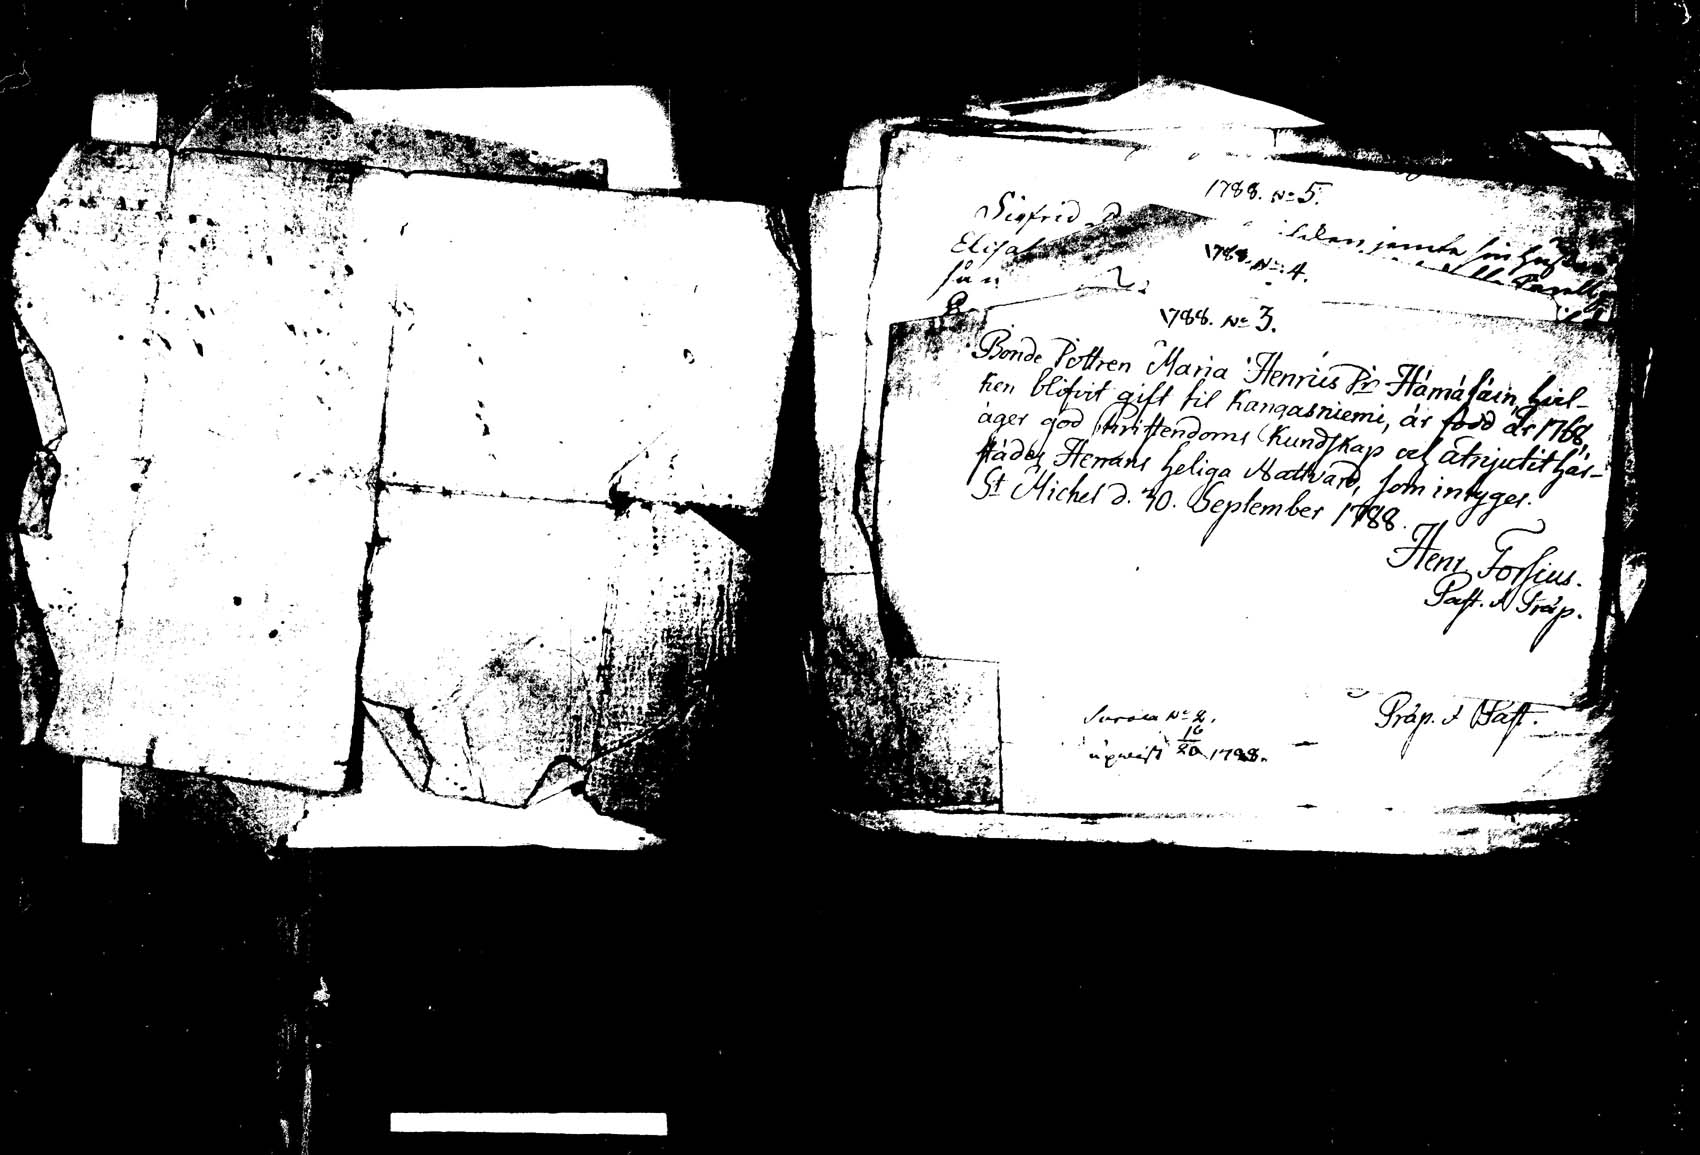 1788. No 5.
Sigfrid
jemte sin
1788. No: 4.
1788. No 3.
Bonde Dottren Maria Henrics Dr Hämäläin, hvil-
ken blifvit gift til Kangasniemi, är född år 1768,
äger god Christendoms Kundskap och åtnjutit här-
städes Herrans heliga Nattvard, som intyges.
St Michel d. 30. September 1788.
Henr. Forsius.
Past. & Præp.
Præp. & Past.
No 2.
16
20 1788.